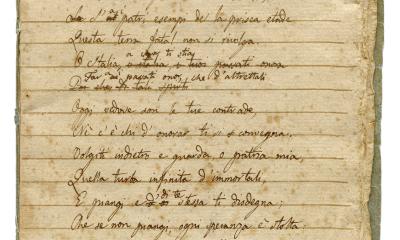 S'ai patri esempi de la prisca etade
Questa terra fatal non si rivolga.
a cuor ti stia
O Italia, o italia, i tuoi passati onora
Far ai passati onor, che d'altrettali
di tali spirti
Oggi vedove son le tue contrade,
Nè c'è chi d'onorar ti si convegna.
Volgiti indietro e guarda, o patria mia,
Quella turba infinita d'immortali,
E piangi e di te stessa ti disdegna;
Che se non piangi, ogni speranza è stolta;